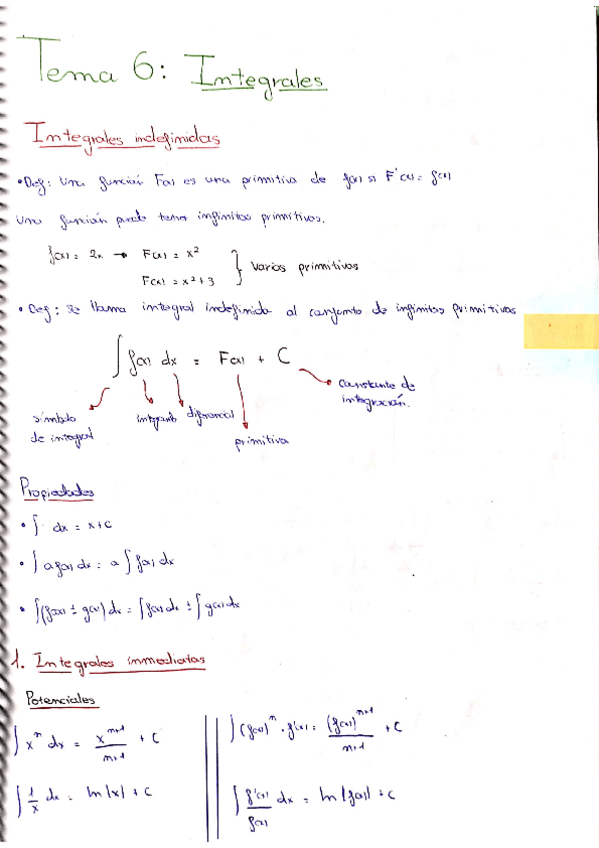 Tema 6: Integrales
Integrales indefinidas
• Def: Una función F(x) es una primitiva de f(x) si F'(x) = f(x)
Una función puede tener infinitas primitivas.
f(x) = 2x → F(x) = x²
F(x) = x² + 3 } varias primitivas
• Def: Se llama integral indefinida al conjunto de infinitas primitivas
∫ f(x) dx = F(x) + C
símbolo de integral
integrando
diferencial
primitiva
constante de integración.
Propiedades
• ∫ dx = x + C
• ∫ a f(x) dx = a ∫ f(x) dx
• ∫ (f(x) ± g(x)) dx = ∫ f(x) dx ± ∫ g(x) dx
1. Integrales immediatas
Potenciales
∫ xⁿ dx = xⁿ⁺¹/(n+1) + C
∫ (f(x))ⁿ · f'(x) = (f(x))ⁿ⁺¹/(n+1) + C
∫ 1/x dx = ln|x| + C
∫ f'(x)/f(x) dx = ln|f(x)| + C